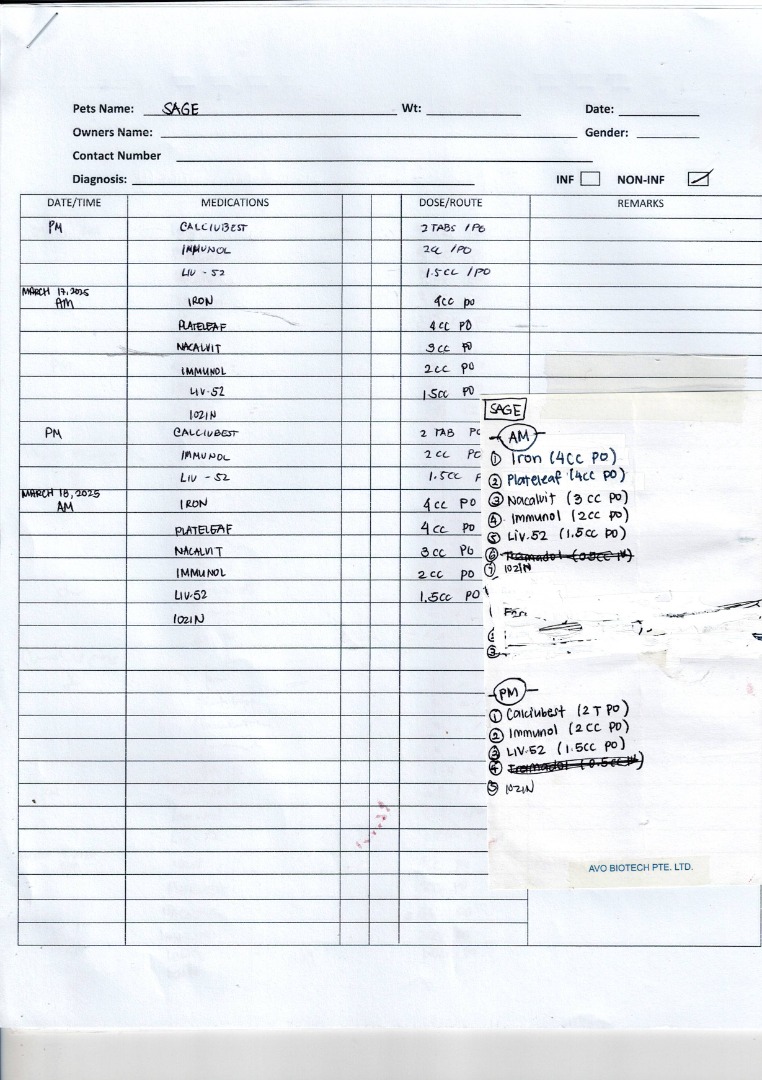 Pets Name: SAGE Wt: Date:
Owners Name: Gender:
Contact Number
Diagnosis: INF NON-INF
DATE/TIME MEDICATIONS DOSE/ROUTE REMARKS
PM CALCIUBEST 2 TABS / PO
IMMUNOL 2cc / PO
LIV - 52 1.5cc / PO
MARCH 17, 2025
AM IRON 4cc po
PLATELEAF 4cc PO
NACALVIT 3cc PO
IMMUNOL 2cc PO
LIV-52 1.5cc PO
102IN
PM CALCIUBEST 2 TAB PO
IMMUNOL 2cc PO
LIV - 52 1.5cc
MARCH 18, 2025
AM IRON 4cc PO
PLATELEAF 4cc PO
NACALVIT 3cc Po
IMMUNOL 2cc PO
LIV-52 1.5cc PO
102IN
SAGE
AM
① Iron (4cc PO)
② Plateleaf (4cc PO)
③ Nacalvit (3 cc PO)
④ Immunol (2cc PO)
⑤ Liv.52 (1.5cc PO)
⑥ Tramadol (0.5cc IV)
⑦ 102IN
PM
① Calciubest (2 T PO)
② Immunol (2cc PO)
③ LIV.52 (1.5cc PO)
④ Tramadol (0.5cc IV)
⑤ 102IN
AVO BIOTECH PTE. LTD.